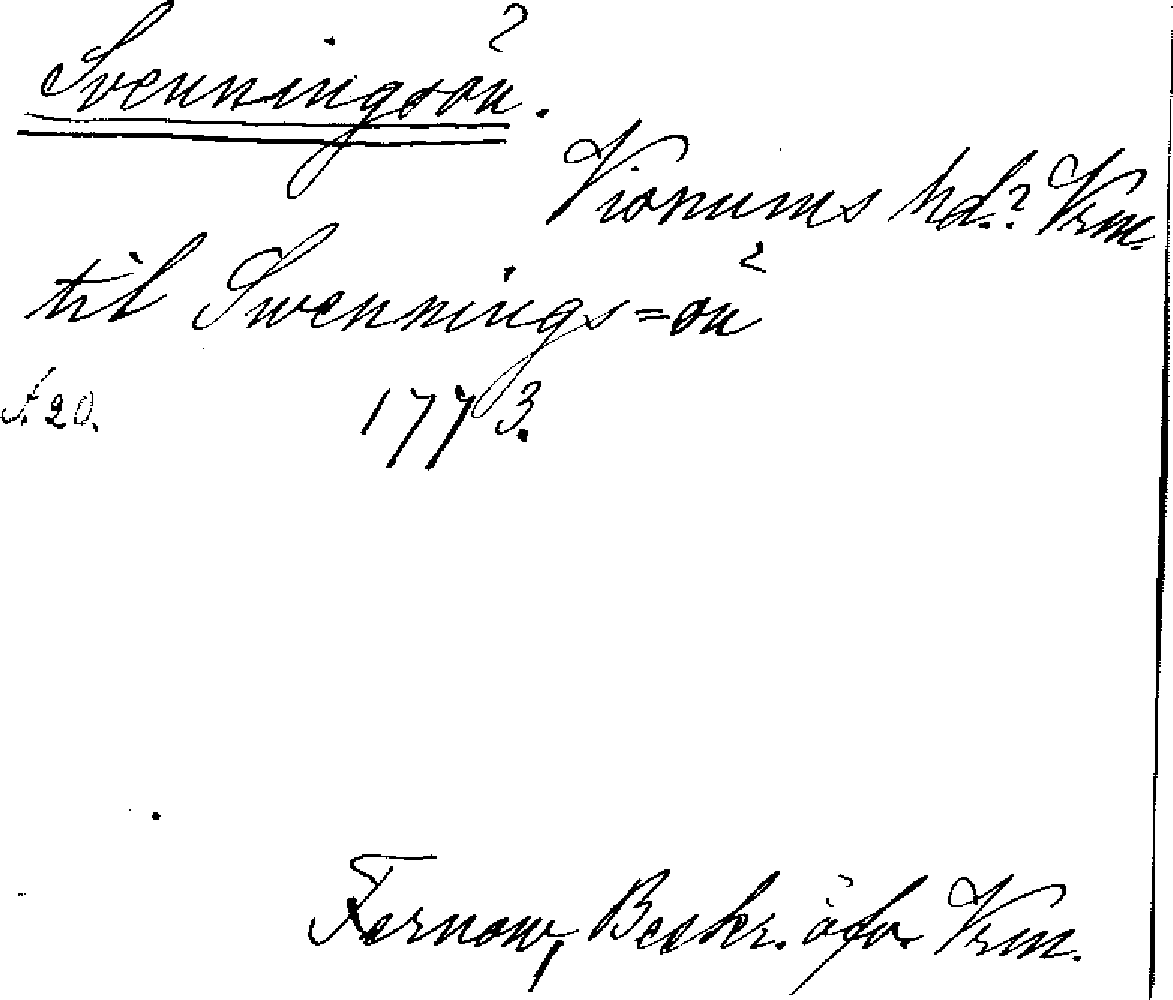 Svenningsön.
Visnums hd.? Vrm.
til Swennings=ön
s. 20. 1773.
Fernow, Beskr. öfv. Vrm.